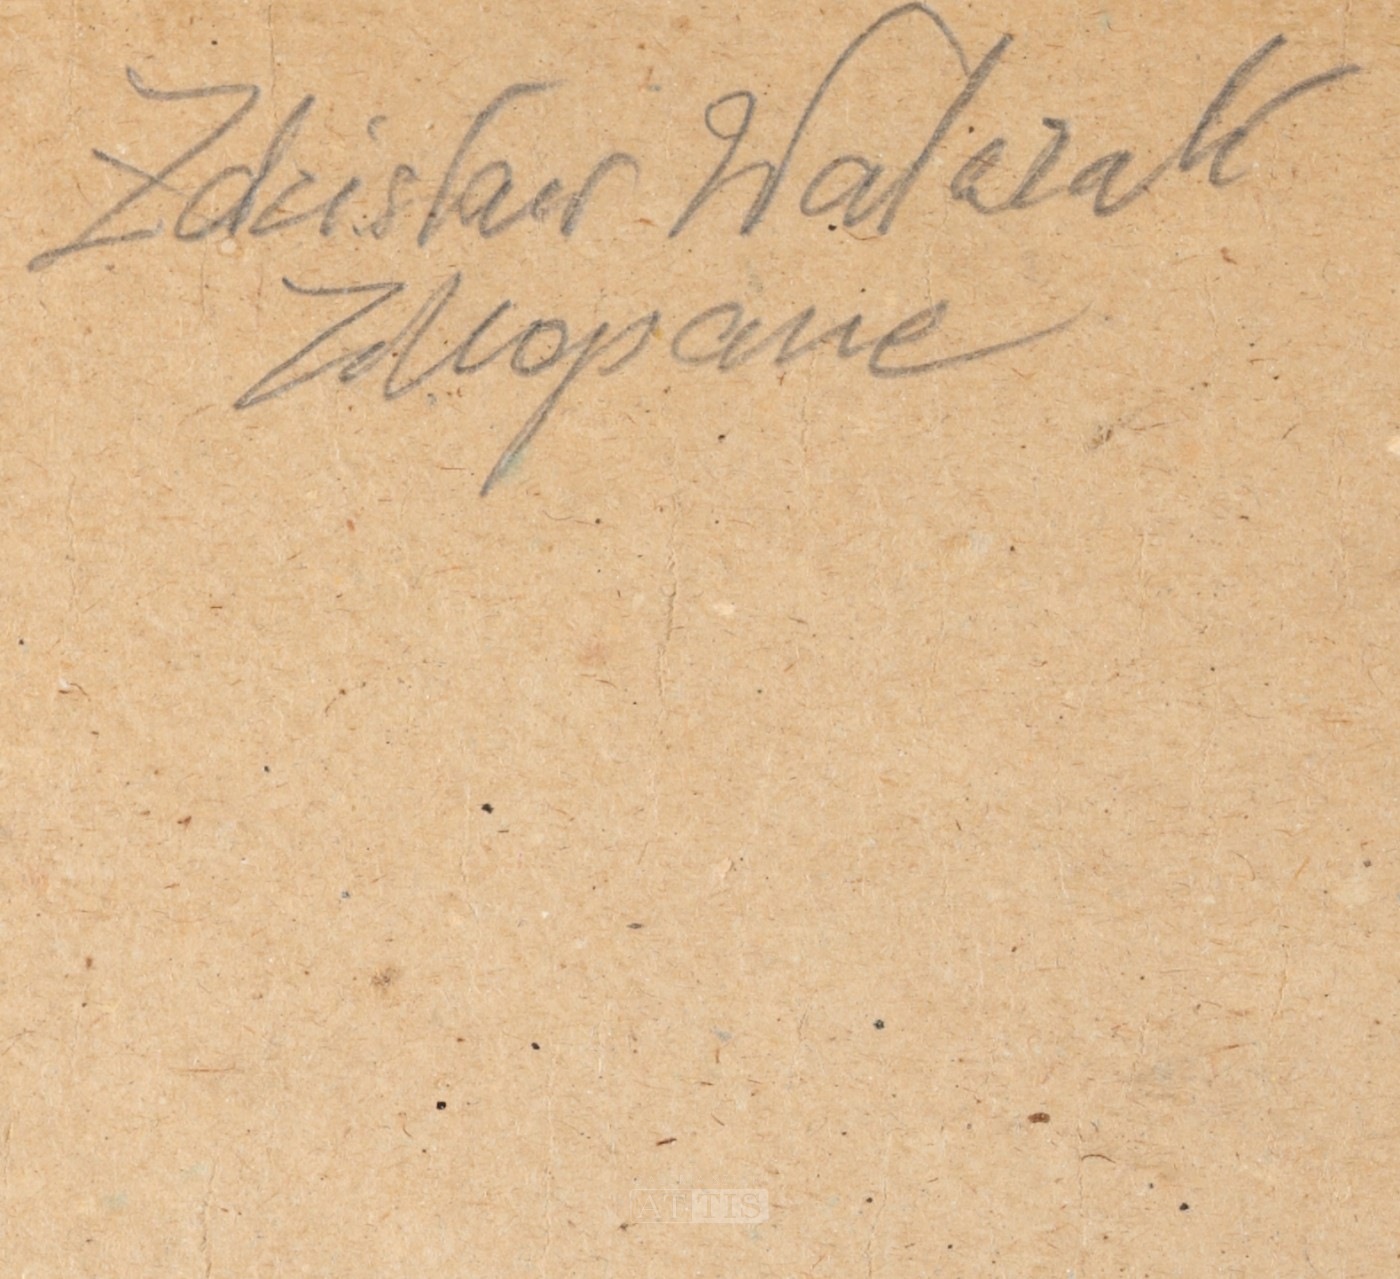 Zdzisław Walczak
Zakopane